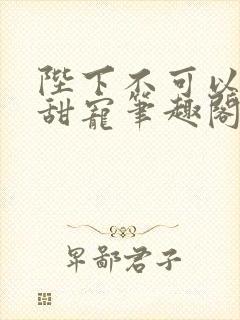 陛下不可以
甜宠笔趣阁
卑鄙君子